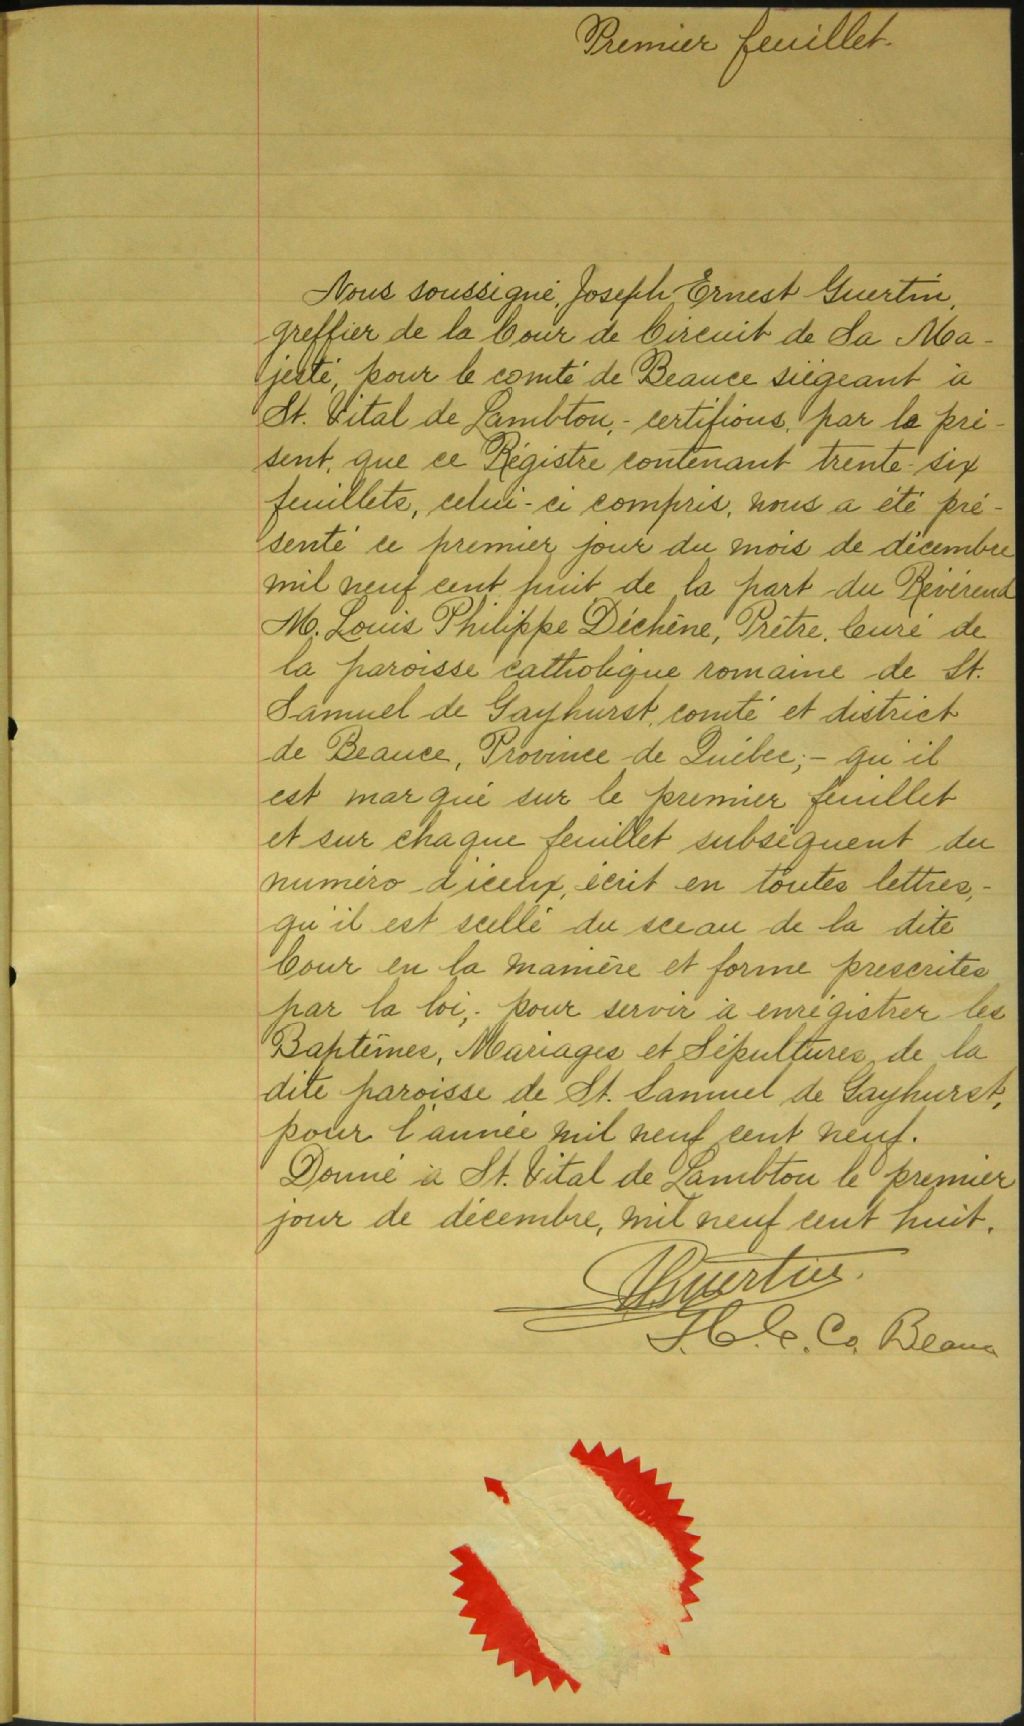 Premier feuillet.
Nous soussigné, Joseph Ernest Guertin,
greffier de la Cour de Circuit de Sa Ma-
jesté, pour le comté de Beauce siégeant à
St. Vital de Lambton,- certifions, par le pré-
sent, que ce Régistre contenant trente-six
feuillets, celui-ci compris, nous a été pré-
senté ce premier jour du mois de décembre
mil neuf cent huit de la part du Révérend
M. Louis Philippe Déchêne, Prêtre, Curé de
la paroisse catholique romaine de St.
Samuel de Gayhurst, comté et district
de Beauce, Province de Québec;- qu'il
est marqué sur le premier feuillet
et sur chaque feuillet subséquent du
numéro d'iceux, écrit en toutes lettres,-
qu'il est scellé du sceau de la dite
Cour en la manière et forme prescrites
par la loi,- pour servir à enrégistrer les
Baptêmes, Mariages et Sépultures de la
dite paroisse de St. Samuel de Gayhurst,
pour l'année mil neuf cent neuf.
Donné à St. Vital de Lambton le premier
jour de décembre, mil neuf cent huit.
Guertin.
C. C. Co. Beauce